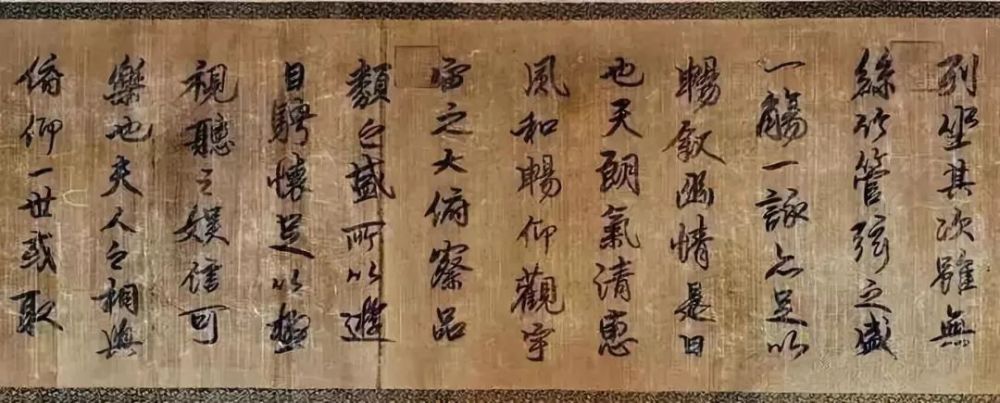 列坐其次雖無
絲竹管弦之盛
一觴一詠亦足以
暢叙幽情是日
也天朗氣清惠
風和暢仰觀宇
宙之大俯察品
類之盛所以遊
目騁懷足以極
視聽之娛信可
樂也夫人之相與
俯仰一世或取